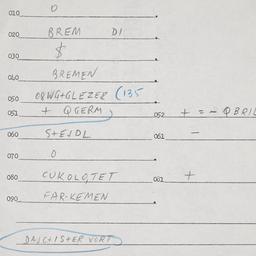 010 0
020 BREM DI
030 $
040 BREMEN
050 OQWG+GLEZER (135
051 + QGERM 052 + = - QBRIL
060 S+EJDL 061 -
070 0
080 CUKOLO,TET 081 +
090 FAR-KEMEN